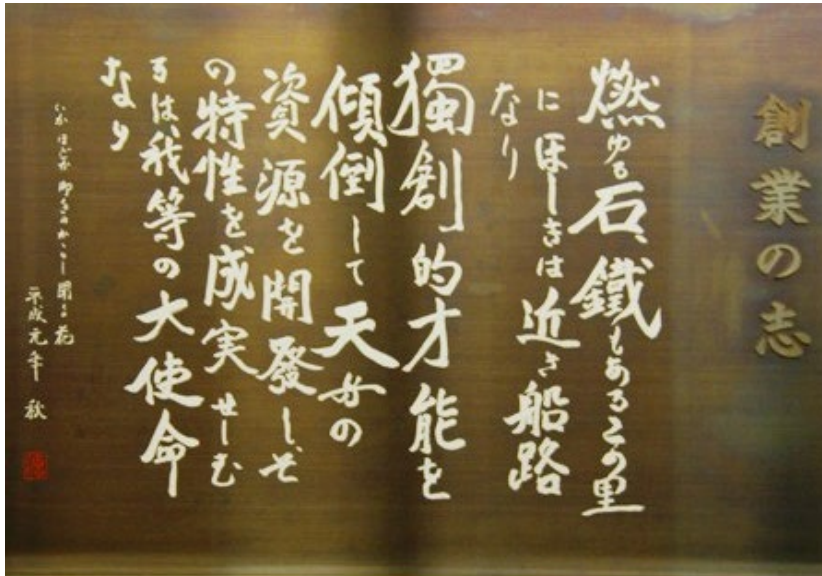 創業の志
燃ゆる石、鐵もあるこの里
にほしきは近き船路
なり
獨創的才能を
傾倒して天与の
資源を開發しそ
の特性を成実せしむ
るは、我等の大使命
なり
平成元年 秋